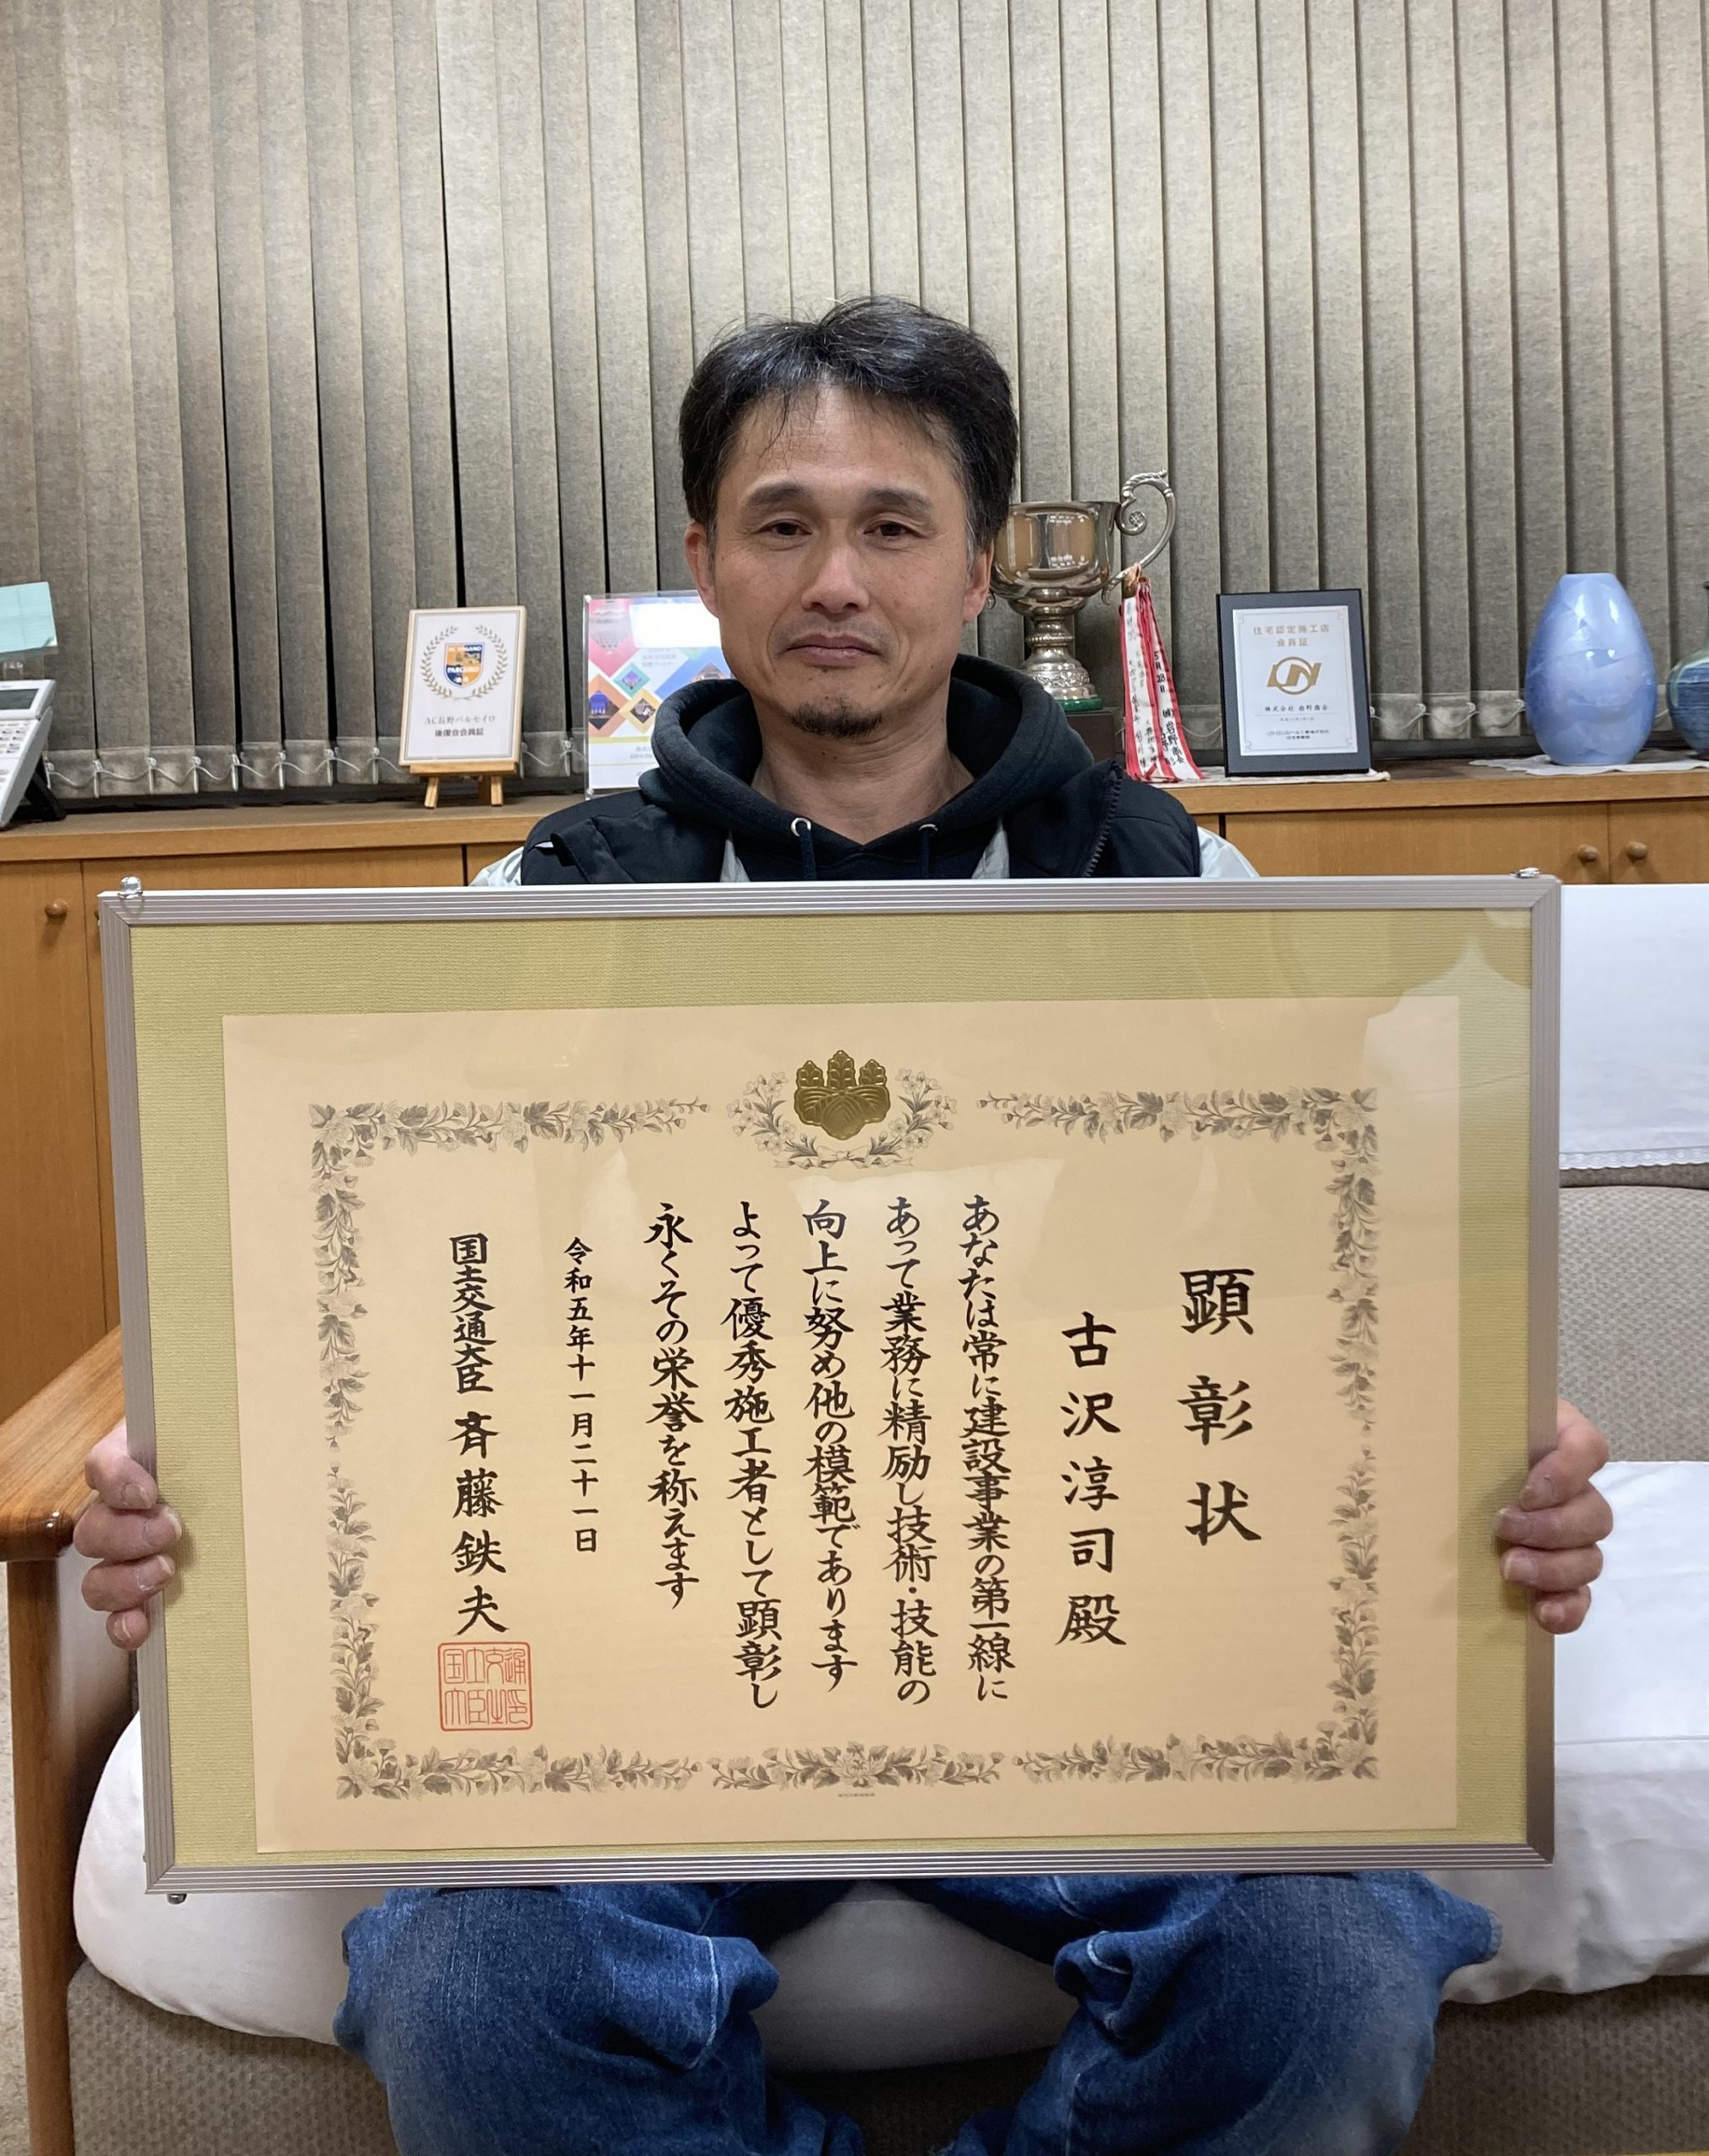 顕彰状
古沢淳司殿
あなたは常に建設事業の第一線に
あって業務に精励し技術・技能の
向上に努め他の模範であります
よって優秀施工者として顕彰し
永くその栄誉を称えます
令和五年十一月二十一日
国土交通大臣 斉藤鉄夫
AC長野パルセイロ
後援会会員証
住宅認定施工店
会員証